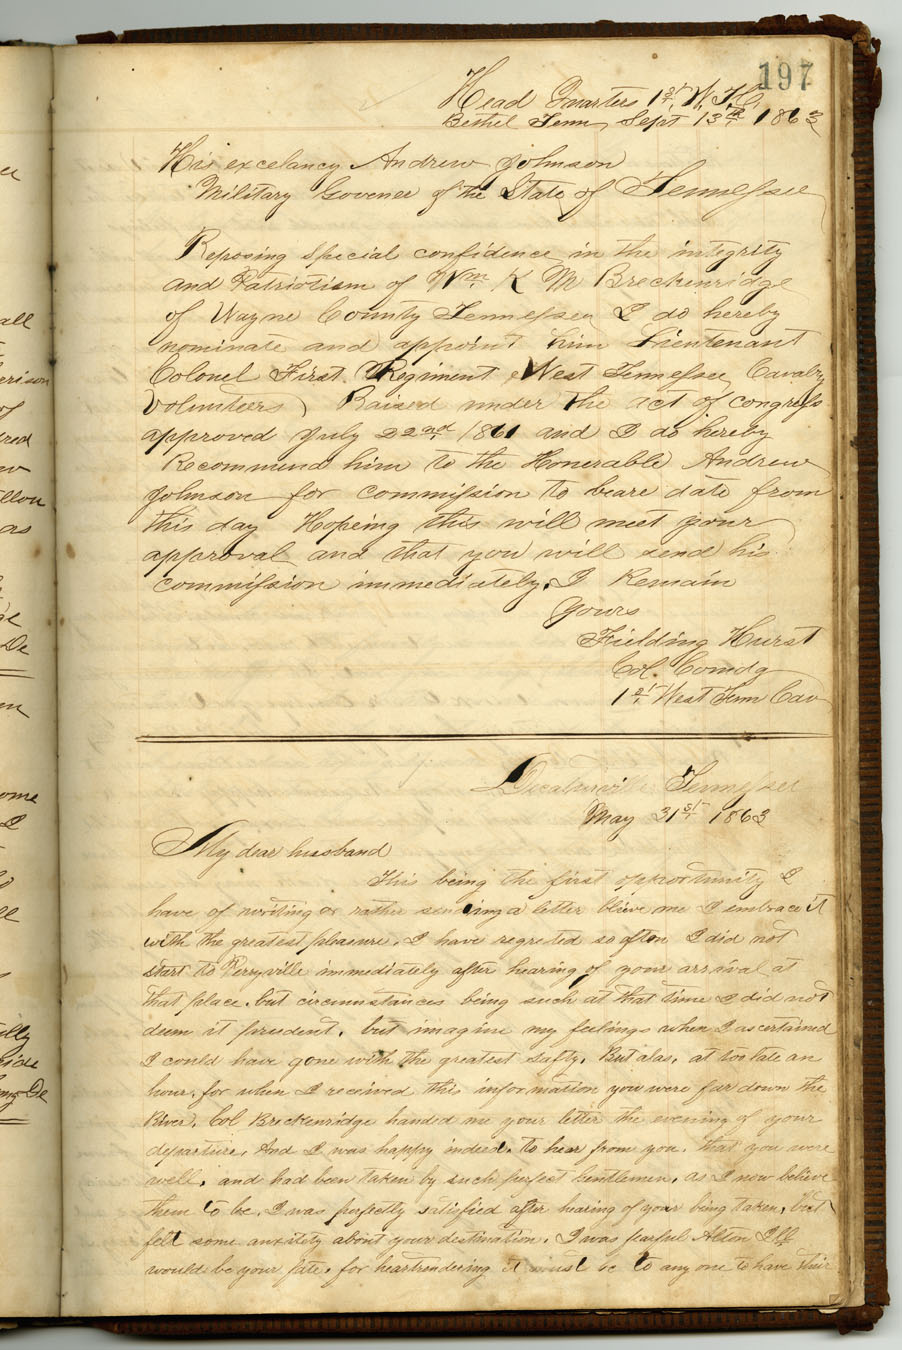 197
Head Quarters 1st W. T. C.
Bethel Tenn, Sept 13th 1863
His excelancy Andrew Johnson
Military Govener of the State of Tennessee
Reposing Special confidence in the integrity
and Patriotism of Wm. K M Breckenridge
of Wayne County Tennessee I do hereby
nominate and appoint him Lieutenant
Colonel First Regiment West Tennessee Cavalry
Volunteers Raised under the act of congress
approved July 22nd 1861 and I do hereby
Recommend him to the Honerable Andrew
Johnson for commission to beare date from
this day Hopeing this will meet your
approval and that you will send his
commission immediately. I Remain
yours
Fielding Hurst
Col. Comdg
1st West Tenn Cav
Decaturville Tennessee
May 31st 1863
My dear husband
This being the first opportunity I
have of writing or rather sending a letter blieve me I embrace it
with the greatest pleasure. I have regreted so often I did not
start to Perryville immediately after hearing of your arrival at
that place. but circumstances being such at that time I did not
deem it prudent. but imagine my feelings when I ascertained
I could have gone with the greatest safty. But alas. at too late an
hour. for when I received this information you were far down the
River. Col Breckenridge handed me your letter the evening of your
departure. And I was happy indeed. to hear from you. that you were
well. and had been taken by such perfect Gentlemen. as I now believe
them to be. I was perfectly satisfied after hearing of your being taken, but
felt some anxitety about your destination. I was fearful Alton Ill
would be your fate. for heartrendering it must be to any one to have their
all
of
as
De
ome
I